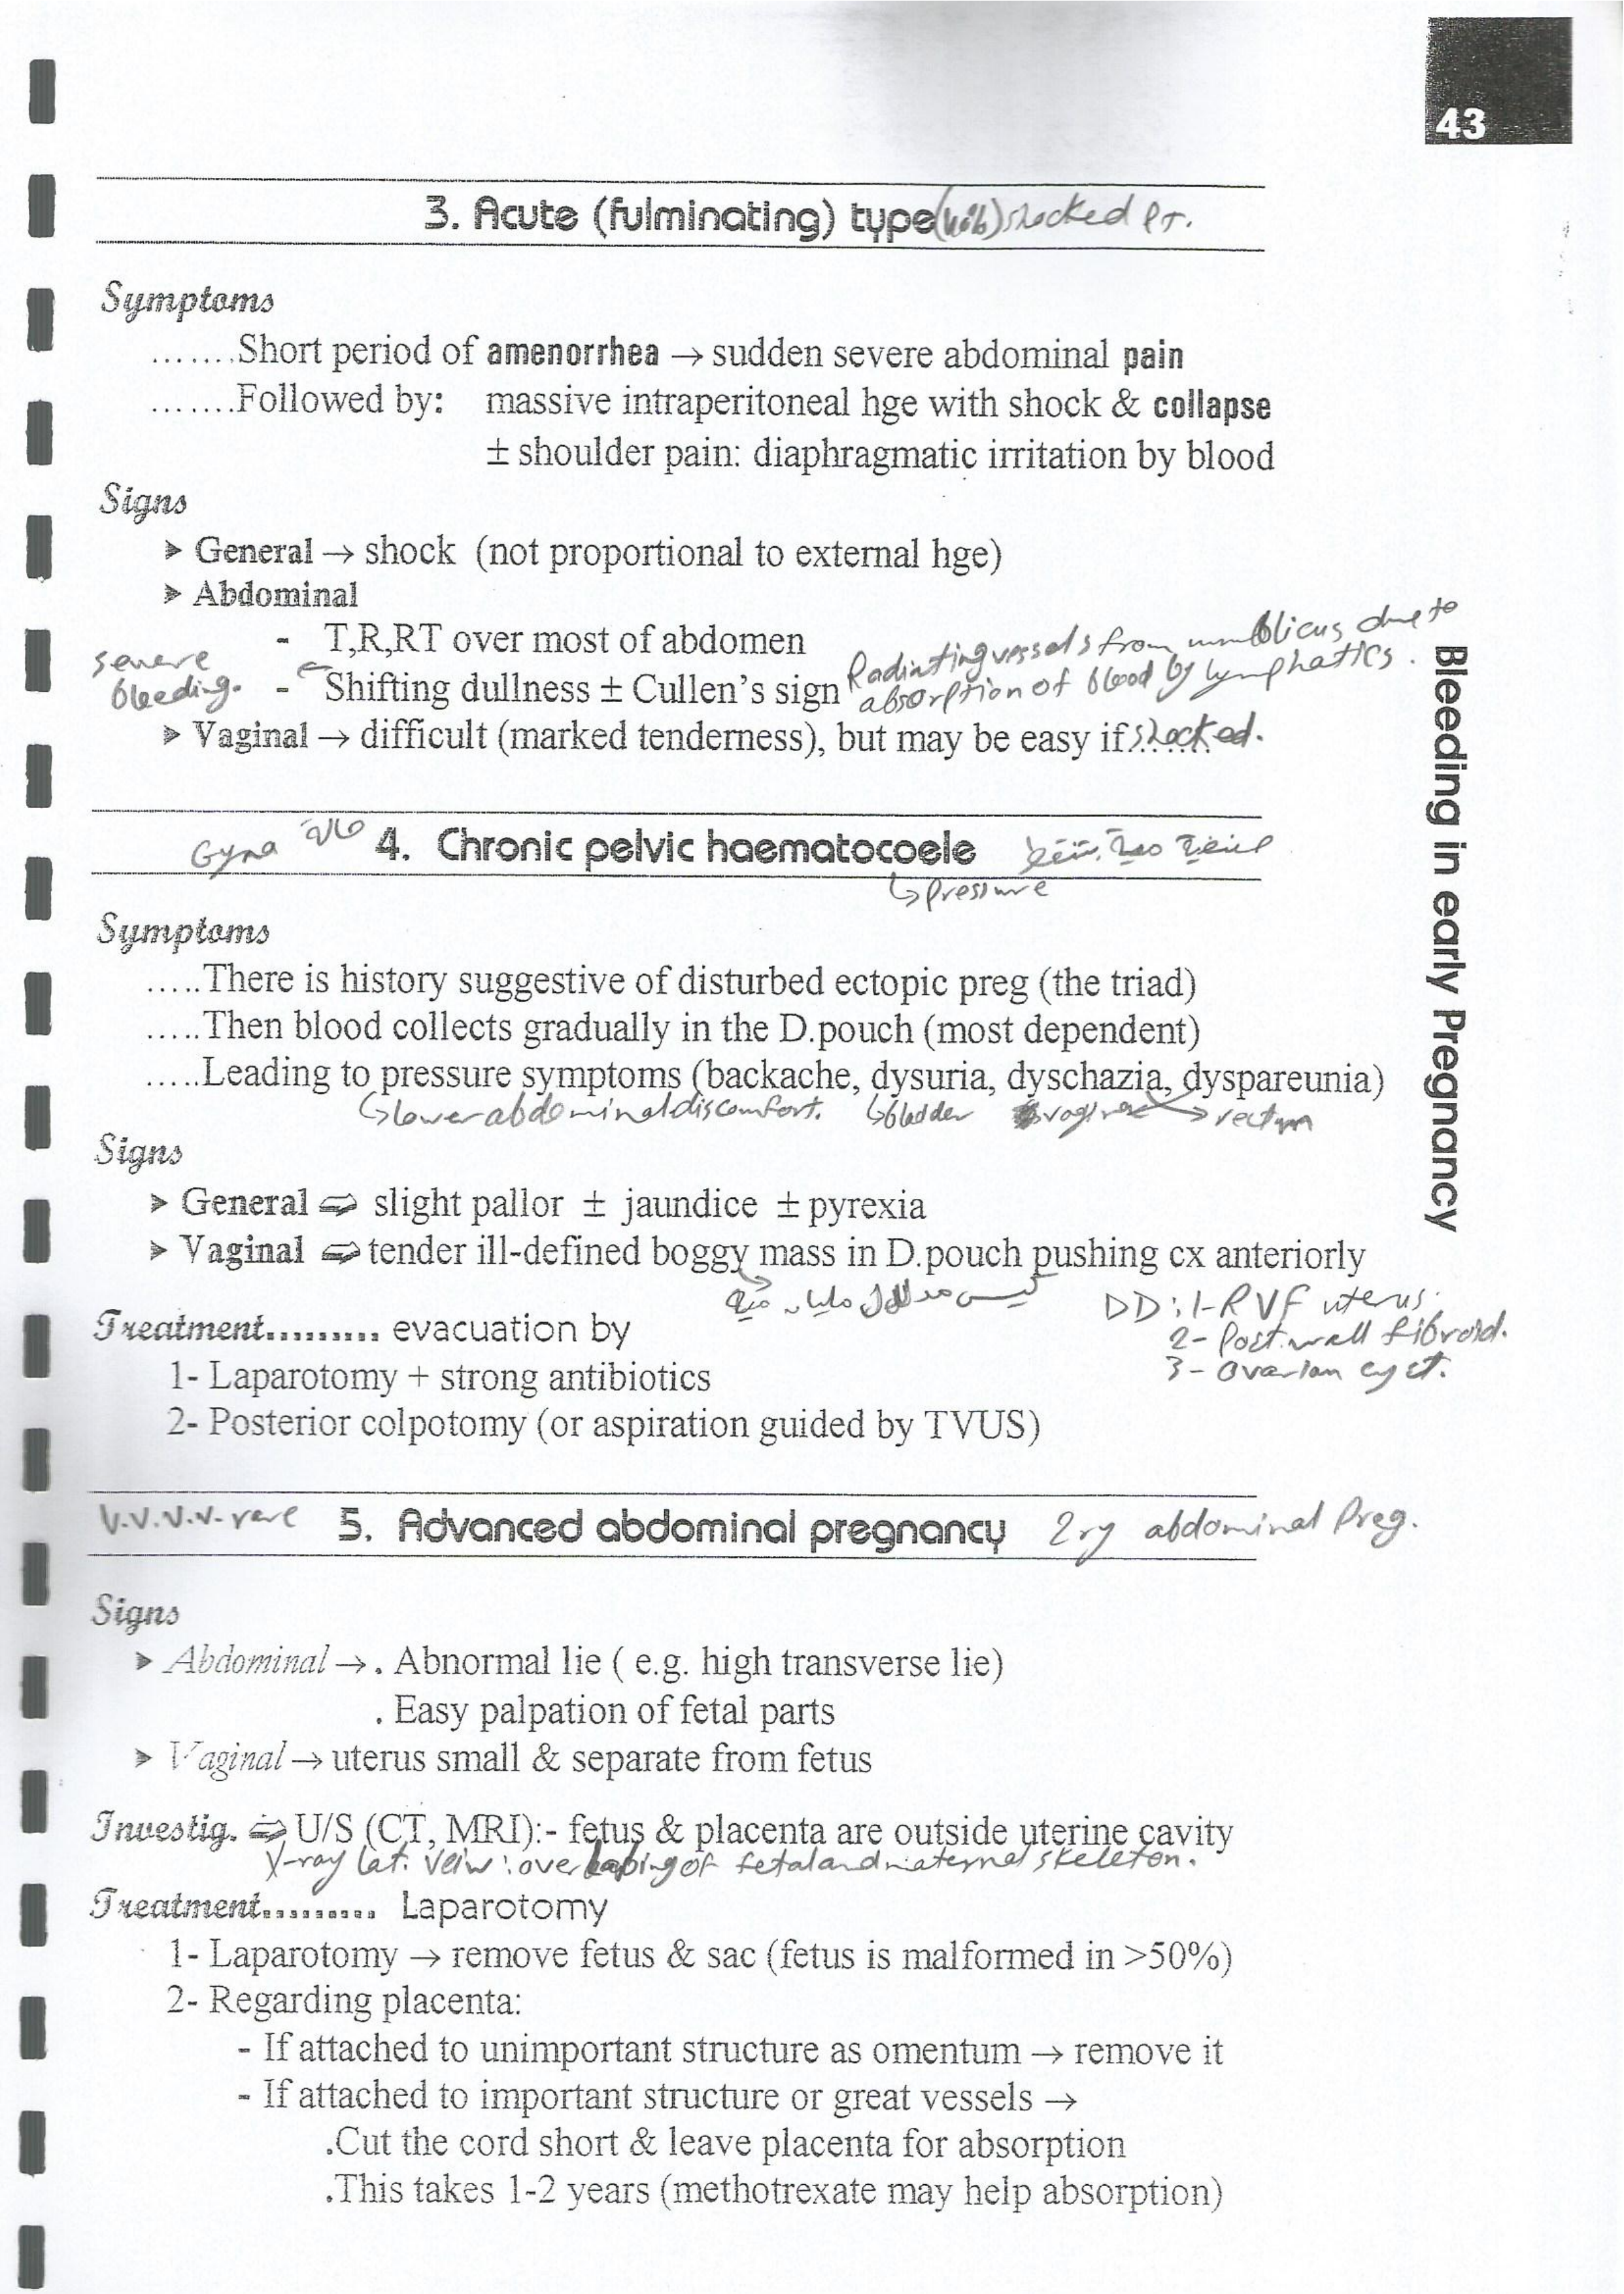 43
3. Acute (fulminating) type shocked Pt.
Symptoms
.......Short period of amenorrhea → sudden severe abdominal pain
.......Followed by: massive intraperitoneal hge with shock & collapse
± shoulder pain: diaphragmatic irritation by blood
Signs
➤ General → shock (not proportional to external hge)
➤ Abdominal
- T,R,RT over most of abdomen
severe bleeding.
- Shifting dullness ± Cullen's sign
Radiating vessels from umblicus due to
absorption of blood by lymphatics.
➤ Vaginal → difficult (marked tenderness), but may be easy if shocked.
Gyna حالة 4. Chronic pelvic haematocoele
↳ pressure
Symptoms
.....There is history suggestive of disturbed ectopic preg (the triad)
.....Then blood collects gradually in the D.pouch (most dependent)
.....Leading to pressure symptoms (backache, dysuria, dyschazia, dyspareunia)
↳ lower abdominal discomfort. ↳ bladder vagina → rectum
Signs
➤ General ⇨ slight pallor ± jaundice ± pyrexia
➤ Vaginal ⇨ tender ill-defined boggy mass in D.pouch pushing cx anteriorly
كيس مدلدل مليان ميه
DD: 1- RVF uterus.
2- Post. wall fibroid.
3- Ovarian cyst.
Treatment......... evacuation by
1- Laparotomy + strong antibiotics
2- Posterior colpotomy (or aspiration guided by TVUS)
V.V.V.V. rare 5. Advanced abdominal pregnancy 2ry abdominal Preg.
Signs
➤ Abdominal → . Abnormal lie ( e.g. high transverse lie)
. Easy palpation of fetal parts
➤ Vaginal → uterus small & separate from fetus
Investig. ⇨ U/S (CT, MRI):- fetus & placenta are outside uterine cavity
X-ray Lat. veiw: overlabing of fetal and maternal skeleton.
Treatment.......... Laparotomy
1- Laparotomy → remove fetus & sac (fetus is malformed in >50%)
2- Regarding placenta:
- If attached to unimportant structure as omentum → remove it
- If attached to important structure or great vessels →
.Cut the cord short & leave placenta for absorption
.This takes 1-2 years (methotrexate may help absorption)
Bleeding in early Pregnancy